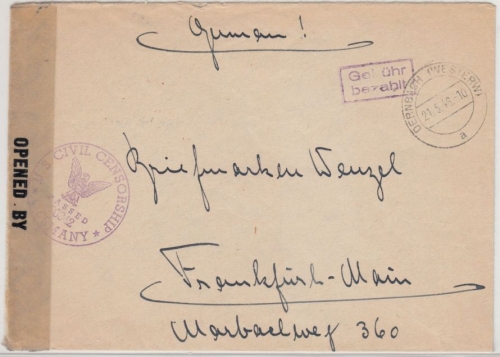 German!
Gebühr
bezahlt
DERNBACH (WESTERW)
21.5.46.-10
a
OPENED BY
CIVIL CENSORSHIP
PASSED
GERMANY *
Briefmarken Wenzel
Frankfurt-Main
Marbachweg 360